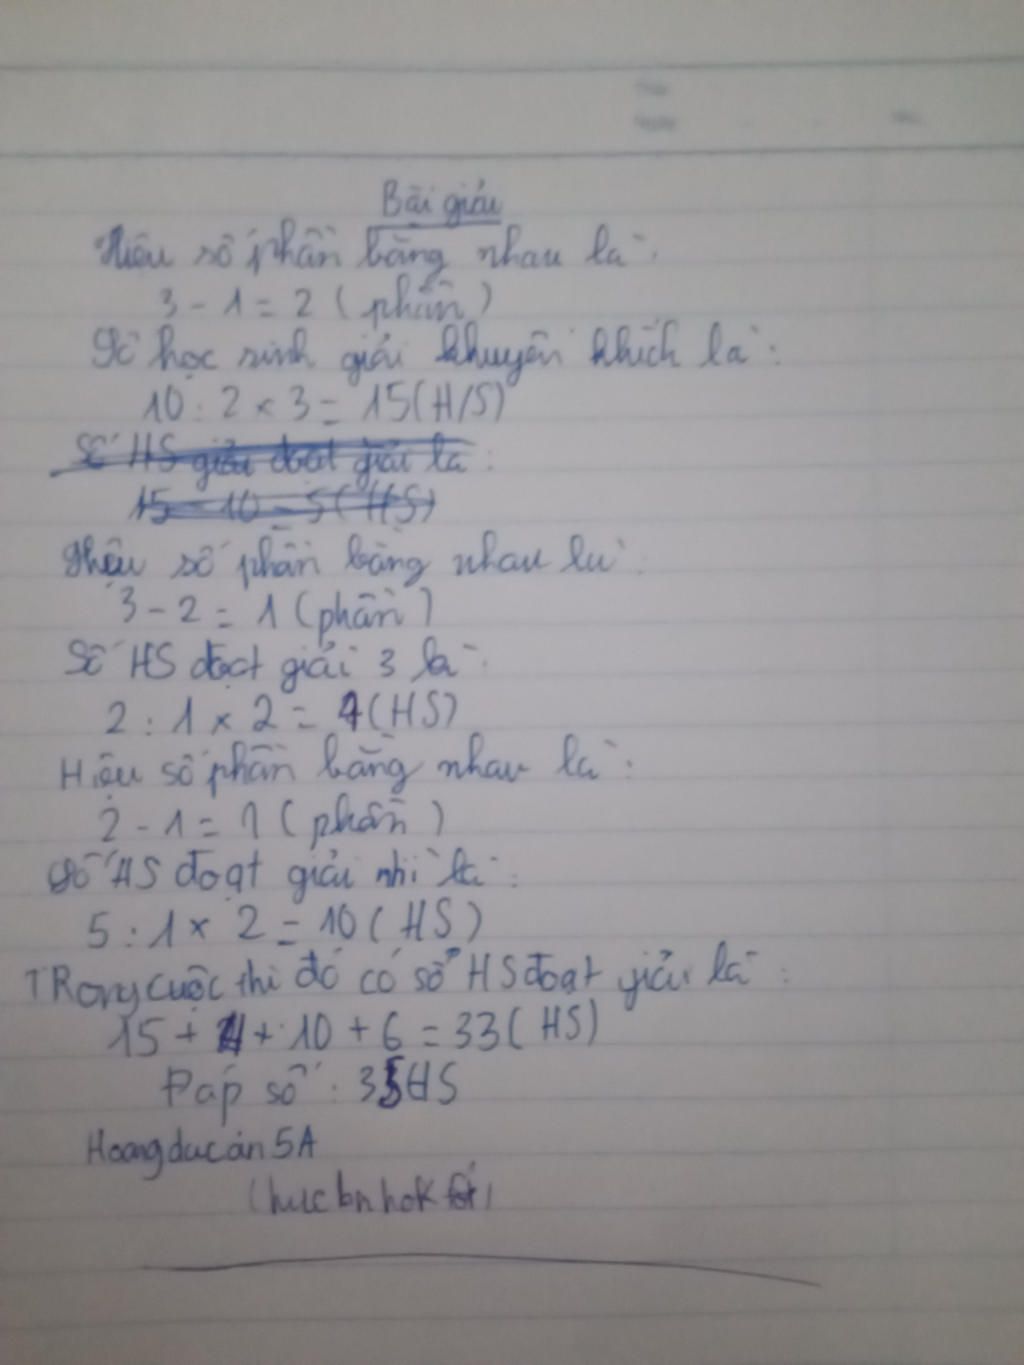 Bài giải
Hiệu số phần bằng nhau là:
3 - 1 = 2 (phần)
Số học sinh giải khuyến khích là:
10 : 2 × 3 = 15 (H/S)
Số HS giải đoạt giải là:
15 - 10 = 5 (HS)
Hiệu số phần bằng nhau là:
3 - 2 = 1 (phần)
Số HS đoạt giải 3 là:
2 : 1 × 2 = 4 (HS)
Hiệu số phần bằng nhau là:
2 - 1 = 1 (phần)
Số HS đoạt giải nhì là:
5 : 1 × 2 = 10 (HS)
TRong cuộc thi đó có số HS đoạt giải là:
15 + 4 + 10 + 6 = 33 (HS)
Đáp số : 35 HS
Hoangducan 5A
(huc bn hok tốt)